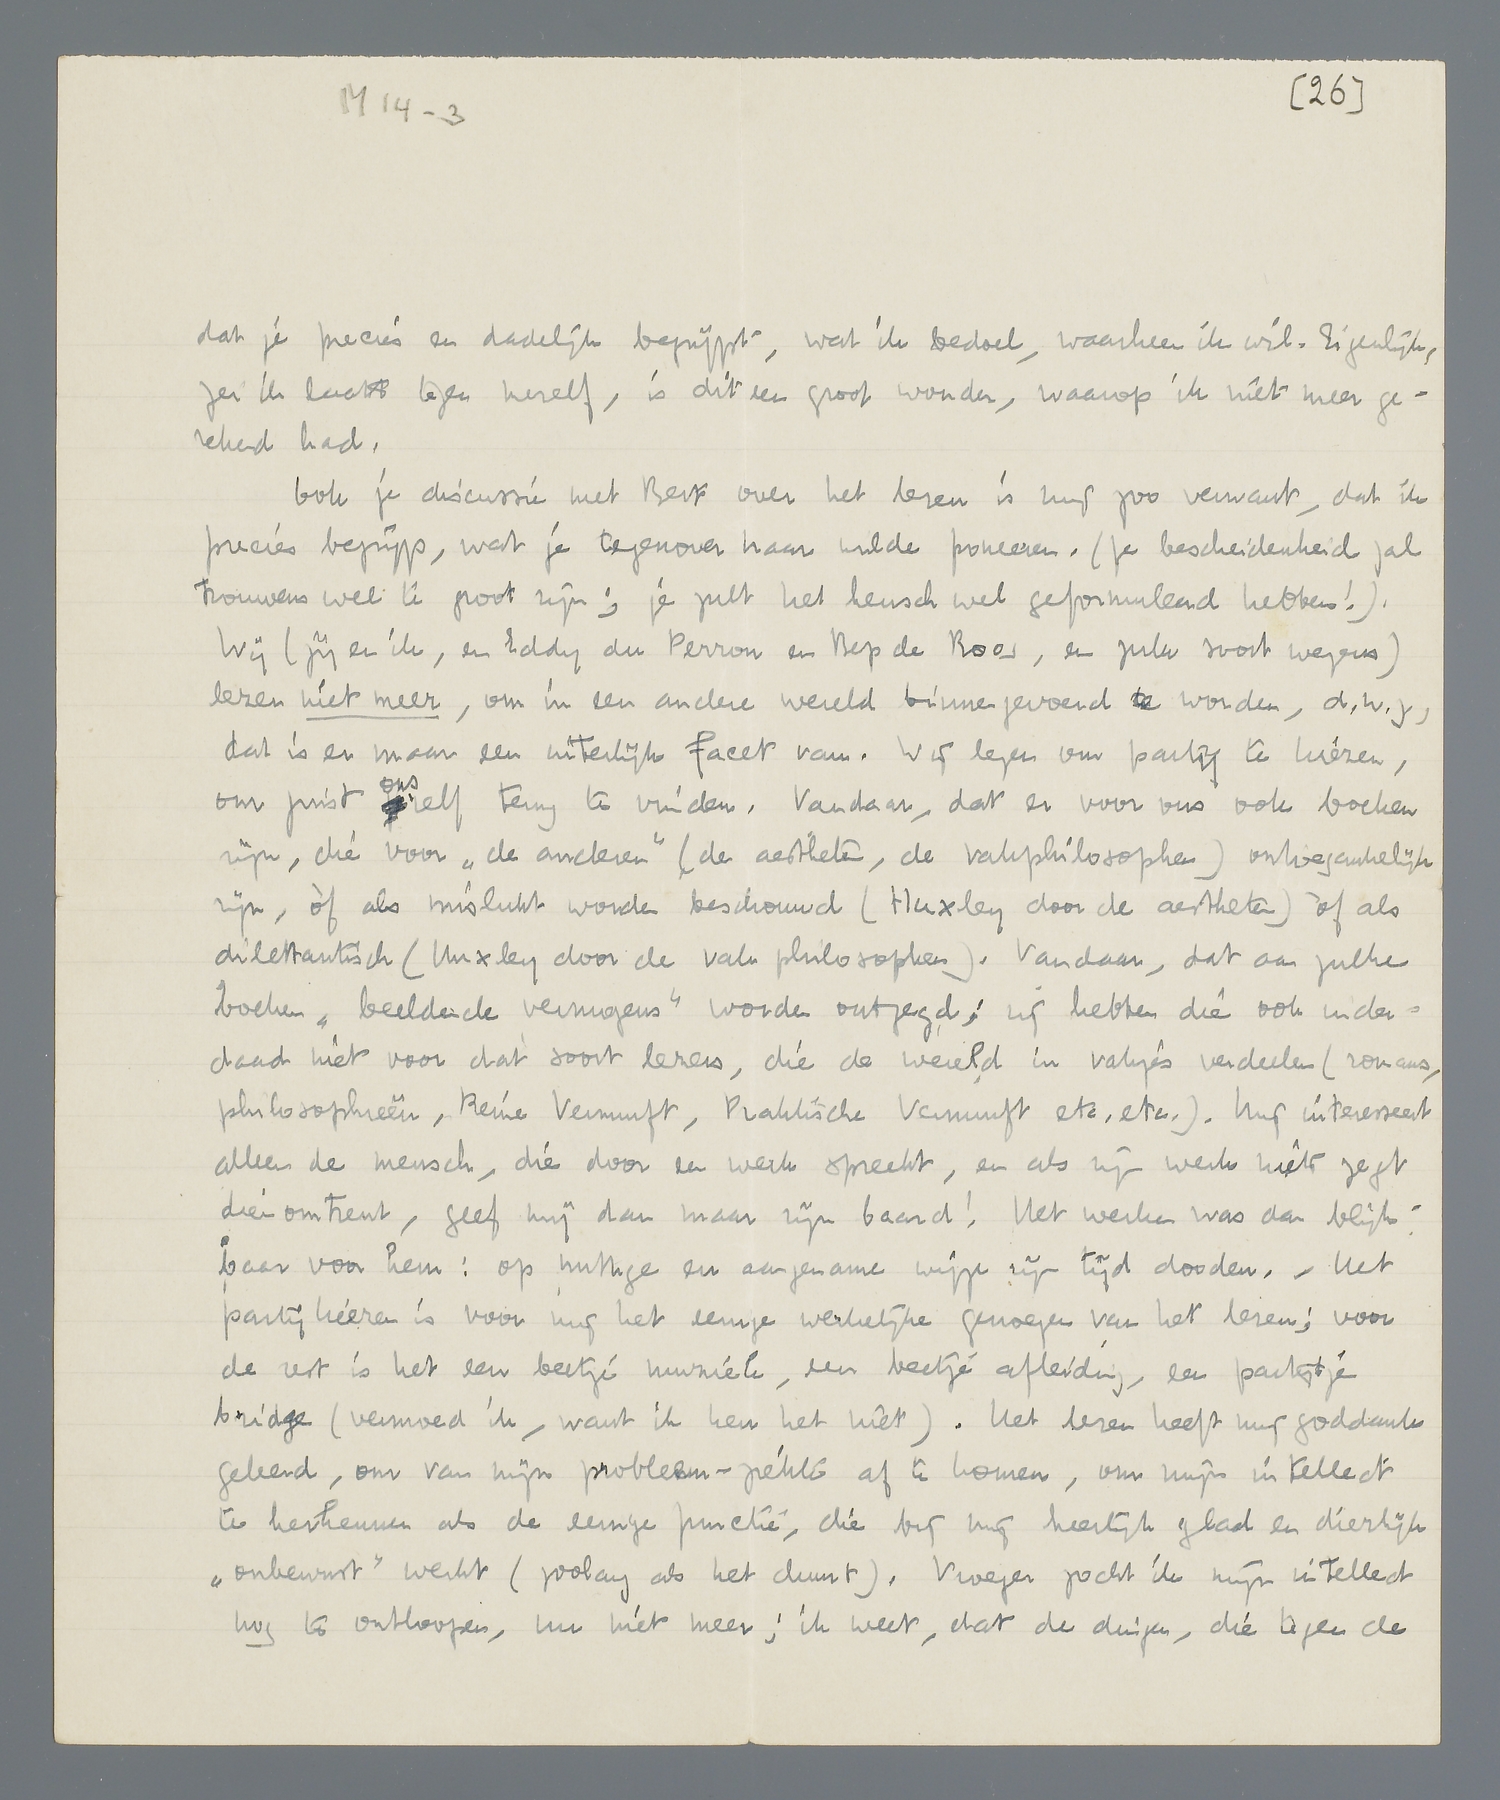 M 14-3
[26]
dat je precies en dadelijk begrijpt, wat ik bedoel, waarheen ik wil. Eigenlijk,
zei ik laatst tegen mezelf, is dit een groot wonder, waarop ik niet meer ge-
rekend had.
Ook je discussie met Bertx over het lezen is mij zoo verwant, dat ik
precies begrijp, wat je tegenover haar wilde poneeren. (Je bescheidenheid zal
trouwens wel te groot zijn; je zult het heusch wel geformuleerd hebben!).
Wij (jij en ik, en Eddy du Perron en Bep de Roos, en zulk soort wezens)
lezen niet meer, om in een andere wereld binnengevoerd te worden, d.w.z.,
dat is er maar een uiterlijk facet van. Wij lezen om partij te kiezen,
om juist onszelf terug te vinden. Vandaar, dat er voor ons ook boeken
zijn, die voor „de anderen" (de aestheten, de vakphilosophen) ontoegankelijk
zijn, òf als mislukt worden beschouwd (Huxley door de aestheten) òf als
dilettantisch (Huxley door de vakphilosophen). Vandaar, dat aan zulke
boeken „beeldende vermogens" worden ontzegd; zij hebben die ook inder-
daad niet voor dat soort lezers, die de wereld in vakjes verdeelen (romans,
philosophieën, Reine Vernunft, Praktische Vernunft etc. etc.). Mij interesseert
alleen de mensch, die door een werk spreekt, en als zijn werk niets zegt
dienomtrent, geef mij dan maar zijn baard! Het werken was dan blijk-
baar voor hem: op nuttige en aangename wijze zijn tijd dooden. – Het
partijkiezen is voor mij het eenige werkelijke genoegen van het lezen; voor
de rest is het een beetje muziek, een beetje afleiding, een partijtje
bridge (vermoed ik, want ik ken het niet). Het lezen heeft mij goddank
geleerd, om van mijn probleem-ziekte af te komen, om mijn intellect
te herkennen als de eenige functie, die bij mij heerlijk glad en dierlijk
„onbewust" werkt (zoolang als het duurt). Vroeger zocht ik mijn intellect
nog te ontloopen, nu niet meer; ik weet, dat de dingen, die tegen de